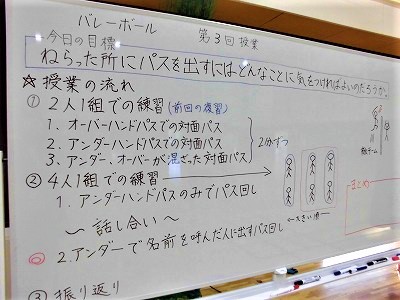 バレーボール
第3回授業
今日の目標
ねらった所にパスを出すにはどんなことに気をつければよいのだろうか。
☆授業の流れ
① 2人1組での練習(前回の復習)
1. オーバーハンドパスでの対面パス
2. アンダーハンドパスでの対面パス
3. アンダー、オーバーが混ざった対面パス
2分ずつ
② 4人1組での練習
1. アンダーハンドパスのみでパス回し
〜話し合い〜
2. アンダーで名前を呼んだ人に出すパス回し
③ 振り返り
まとめ